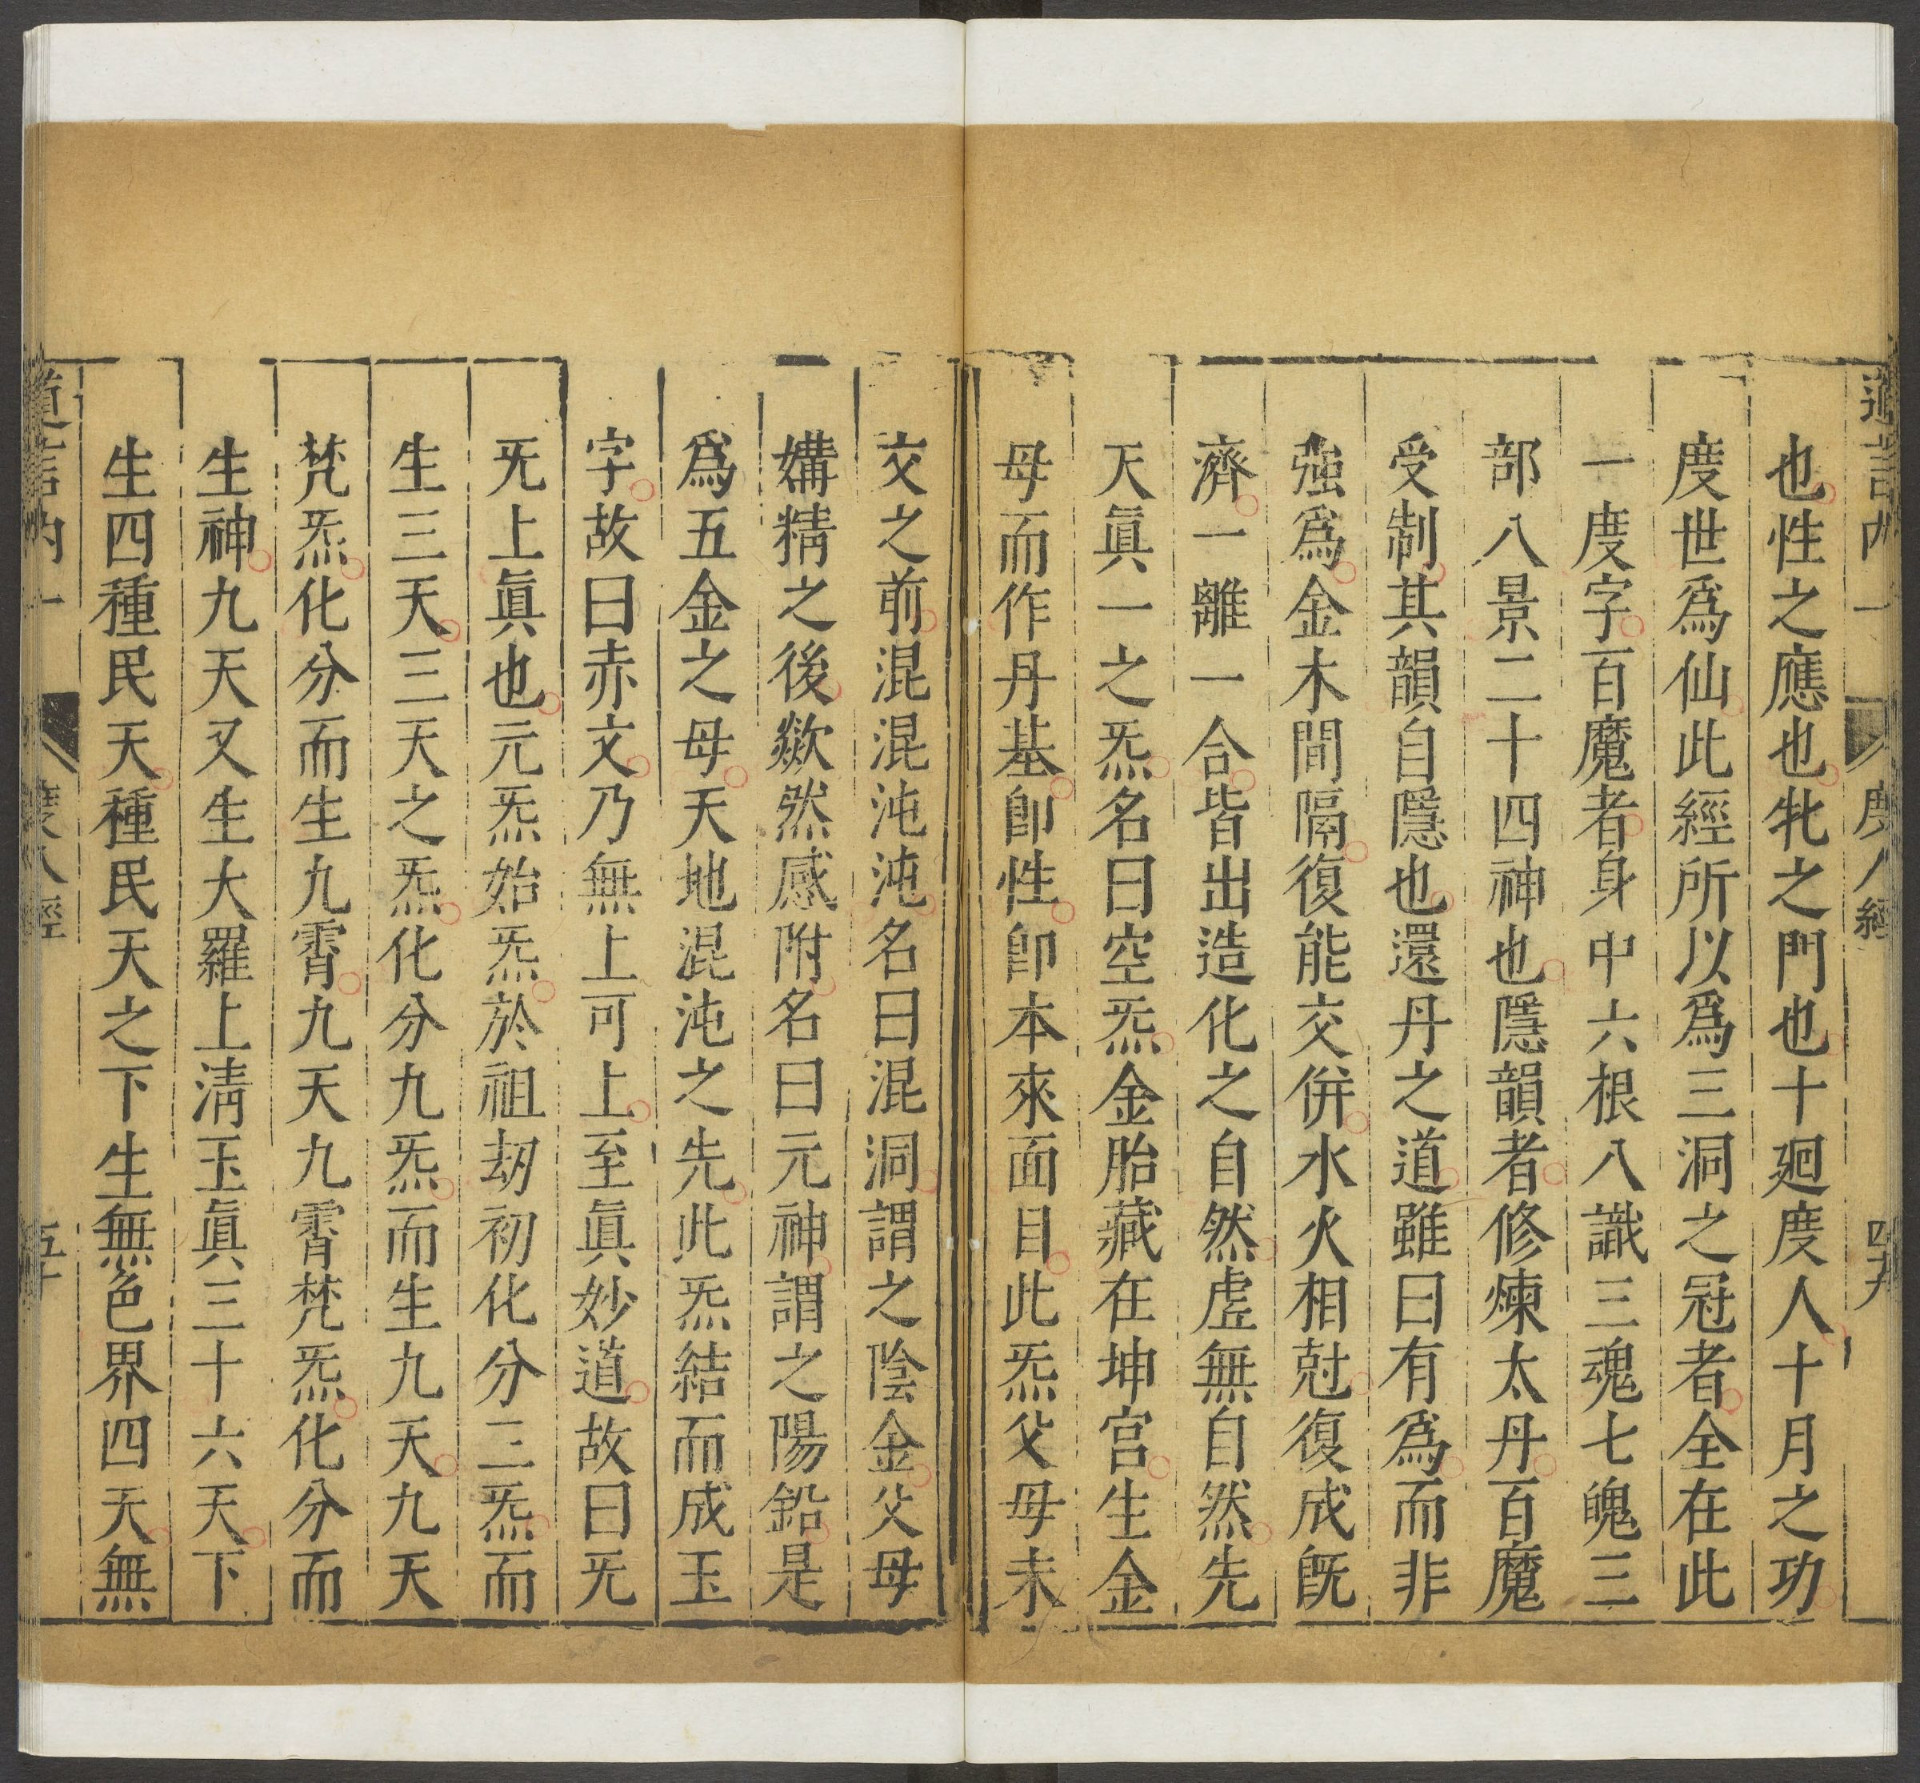 道言內一 度人經 四十九
也性之應也牝之門也十廻度人十月之功
度世爲仙此經所以爲三洞之冠者全在此
一度字百魔者身中六根八識三魂七魄三
部八景二十四神也隱韻者修煉太丹百魔
受制其韻自隱也還丹之道雖曰有爲而非
強爲金木間隔復能交併水火相尅復成旣
濟一離一合皆出造化之自然虛無自然先
天眞一之炁名曰空炁金胎藏在坤宮生金
母而作丹基卽性卽本來面目此炁父母未
交之前混混沌沌名曰混洞謂之陰金父母
媾精之後歘然感附名曰元神謂之陽鉛是
爲五金之母天地混沌之先此炁結而成玉
字故曰赤文乃無上可上至眞妙道故曰旡
旡上眞也元炁始炁於祖劫初化分三炁而
生三天三天之炁化分九炁而生九天九天
梵炁化分而生九霄九天九霄梵炁化分而
生神九天又生大羅上淸玉眞三十六天下
生四種民天種民天之下生無色界四天無
道言內一 度人經 五十